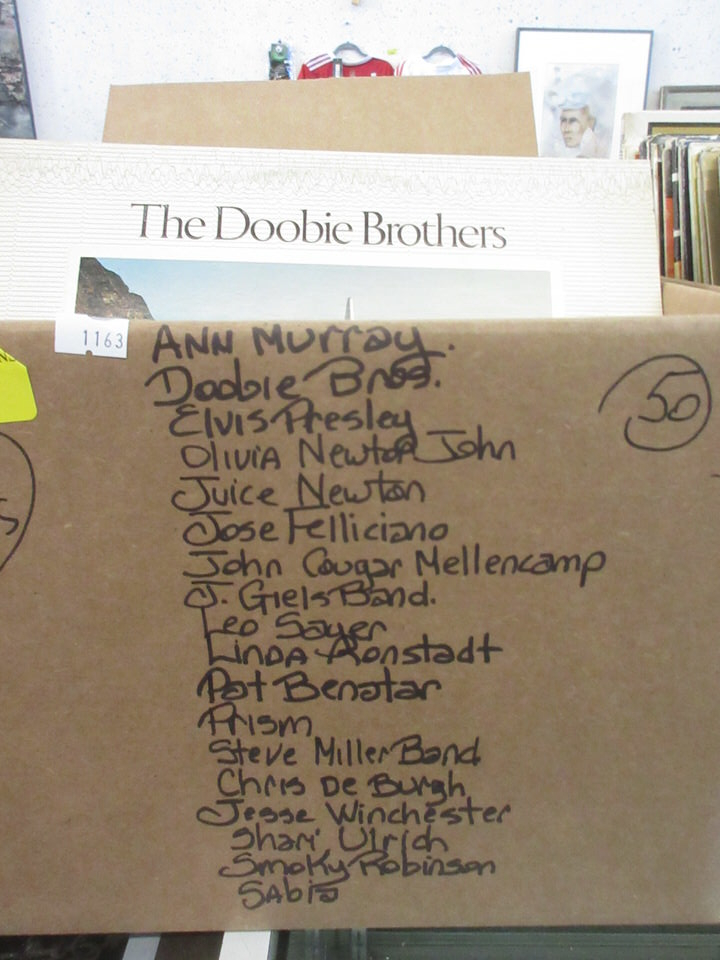 The Doobie Brothers
1163
ANN Murray.
Doobie Bros.
50
Elvis Presley
Olivia Newton John
Juice Newton
Jose Felliciano
John Cougar Mellencamp
J. Giels Band.
Leo Sayer
Linda Ronstadt
Pat Benatar
Prism
Steve Miller Band
Chris De Burgh
Jesse Winchester
Shari Ulrich
Smoky Robinson
Sabia